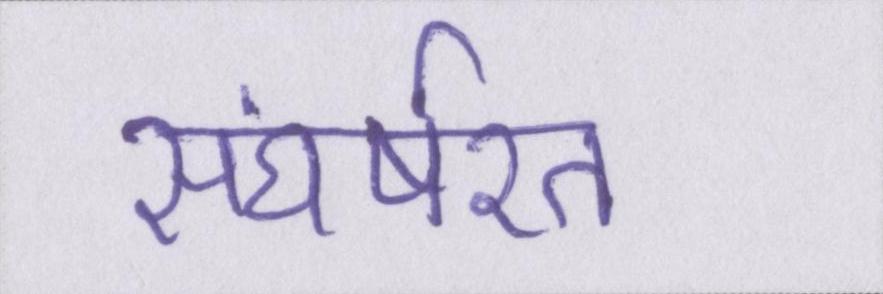 संघर्षरत